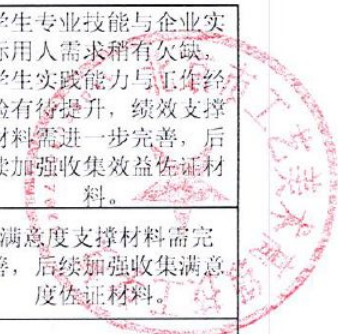 学生专业技能与企业实
际用人需求稍有欠缺，
学生实践能力与工作经
验有待提升，绩效支撑
材料需进一步完善，后
续加强收集效益佐证材
料。
满意度支撑材料需完
善，后续加强收集满意
度佐证材料。